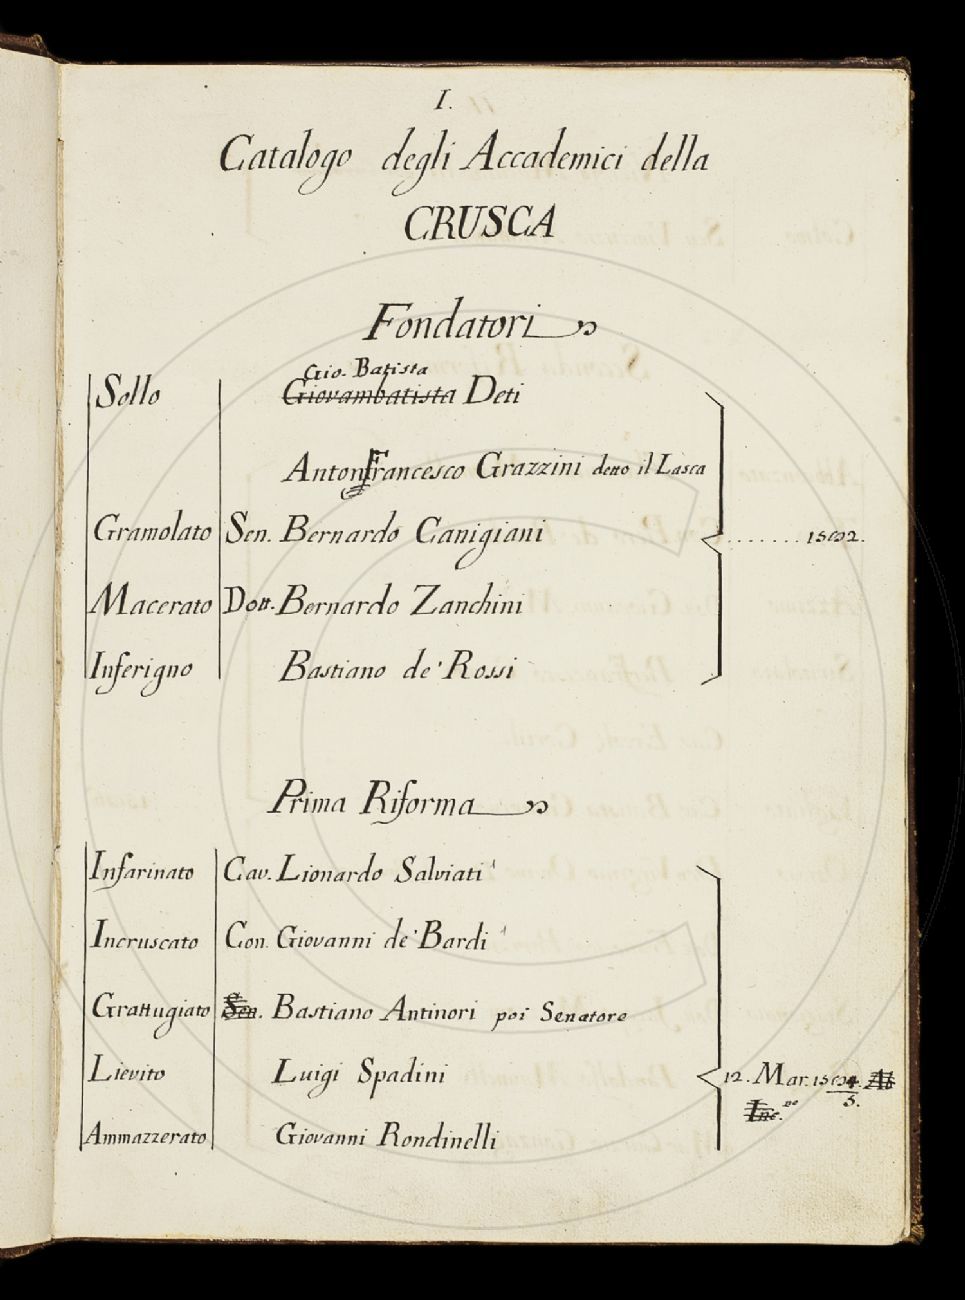 I.
Catalogo degli Accademici della
CRUSCA
Fondatori
Gio. Batista
Sollo Giovambatista Deti
Antonfrancesco Grazzini detto il Lasca
Gramolato Sen. Bernardo Canigiani . . . . . . . 1582.
Macerato Dott. Bernardo Zanchini
Inferigno Bastiano de' Rossi
Prima Riforma
Infarinato Cav. Lionardo Salviati
Incruscato Con. Giovanni de' Bardi
Grattugiato Sen. Bastiano Antinori poi Senatore
Lievito Luigi Spadini 12. Mar. 1584 Ab
5.
Inc.ne
Ammazzerato Giovanni Rondinelli